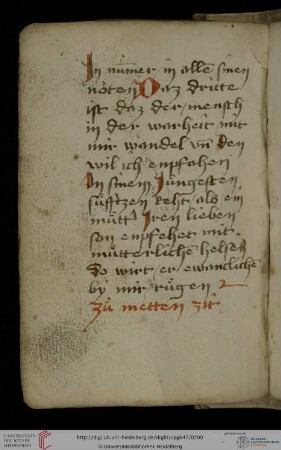 In nu᷑mer in allē sinen
nöten Daz dritte
ist daz der mensch
in der warheit mit
mir wandel vn̄ den
wil ich enpfahen
In sinem Jüngesten
süfftzen reht als ein
mutt Iren lieben
son enpfehet mit
mütterlichē helsen
So wirt er ewanclichē
by mir rügen
Zů metten zit
UNIVERSITÄTS-
BIBLIOTHEK
HEIDELBERG
http://digi.ub.uni-heidelberg.de/diglit/cpg647/0200
© Universitätsbibliothek Heidelberg